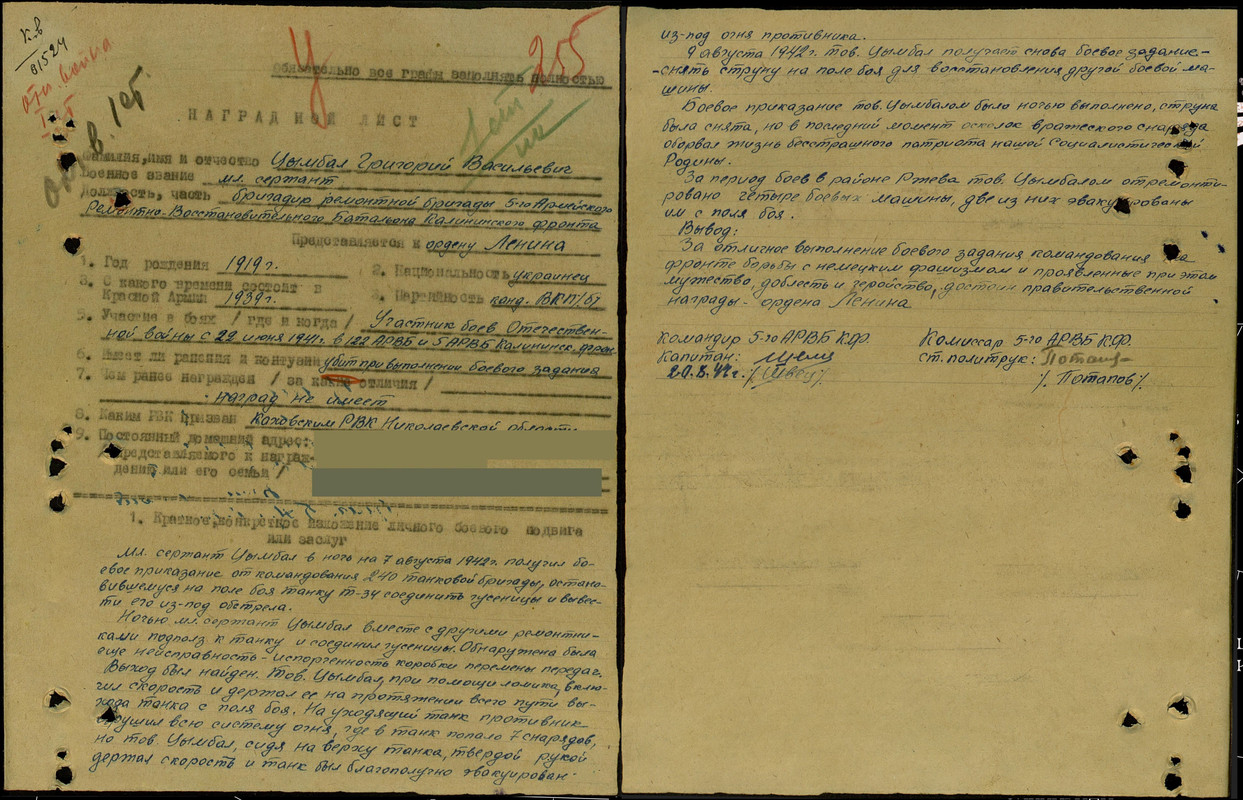 К.В
01524
отеч. война
I ст
255
Обязательно все графы заполнять полностью
НАГРАДНОЙ ЛИСТ
Фамилия, имя и отчество Цымбал Григорий Васильевич
Военное звание мл. сержант
Должность, часть бригадир ремонтной бригады 5-го Армейского
Ремонтно-Восстановительного Батальона Калининского фронта
Представляется к ордену Ленина
1. Год рождения 1919г. 2. Национальность украинец
3. С какого времени состоит в
Красной Армии 1939г. 3. Партийность канд. ВКП/б/
5. Участие в боях / где и когда / Участник боев Отечествен-
ной войны с 22 июня 1941г. в 122 АРВБ и 5 АРВБ Калининск. фрон
6. Имеет ли ранения и контузии убит при выполнении боевого задания
7. Чем ранее награжден / за какие отличия /
наград не имеет
8. Каким РВК призван Каховским РВК Николаевской области
9. Постоянный домашний адрес:
/представляемого к награж-
дению или его семьи /
1. Краткое, конкретное изложение личного боевого подвига
или заслуг
Мл. сержант Цымбал в ночь на 7 августа 1942г. получил бо-
евое приказание от командования 240 танковой бригады, остано-
вившемуся на поле боя танку Т-34 соединить гусеницы и вывес-
ти его из-под обстрела.
Ночью мл. сержант Цымбал вместе с другими ремонтни-
ками подполз к танку и соединил гусеницы. Обнаружена была
еще неисправность - испорченность коробки перемены передач.
Выход был найден. Тов. Цымбал, при помощи ломика, вклю-
чил скорость и держал ее на протяжении всего пути вы-
хода танка с поля боя. На уходящий танк противник
обрушил всю систему огня, где в танк попало 7 снарядов,
но тов. Цымбал, сидя на верху танка, твердой рукой
держал скорость и танк был благополучно эвакуирован
из-под огня противника.
9 августа 1942г. тов. Цымбал получает снова боевое задание-
-снять струну на поле боя для восстановления другой боевой ма-
шины.
Боевое приказание тов. Цымбалом было ночью выполнено, струна
была снята, но в последний момент осколок вражеского снаряда
оборвал жизнь бесстрашного патриота нашей социалистической
Родины.
За период боев в районе Ржева тов. Цымбалом отремонти-
ровано четыре боевых машины, две из них эвакуированы
им с поля боя.
Вывод:
За отличное выполнение боевого задания командования на
фронте борьбы с немецким фашизмом и проявленные при этом
мужество, доблесть и геройство, достоин правительственной
награды - ордена Ленина
Командир 5-го АРВБ КФ. Комиссар 5-го АРВБ КФ.
капитан: Швец ст. политрук: Потапов
20.8.42г. /Швец/ /. Потапов /.